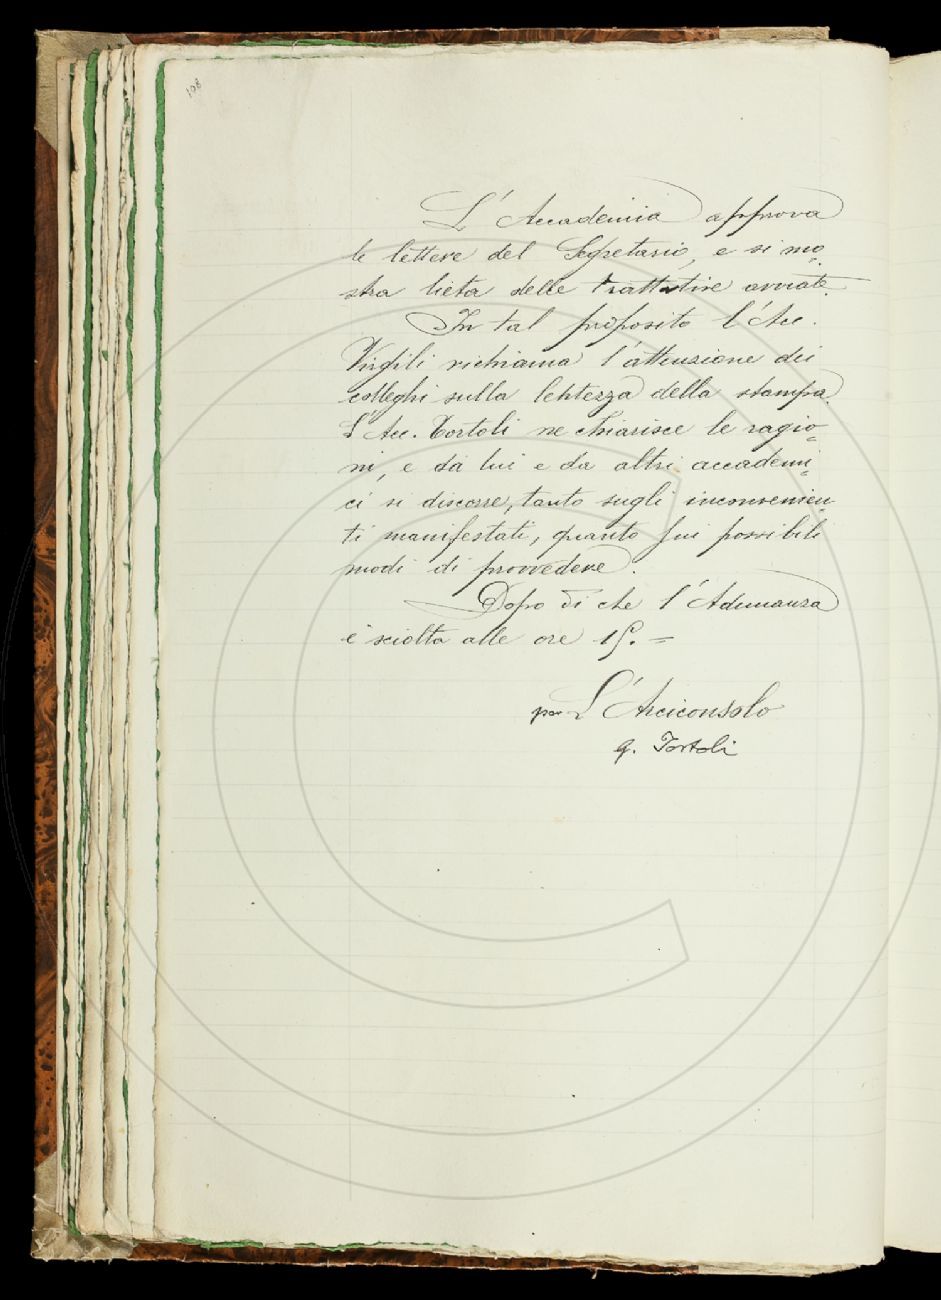 108
L'Accademia approva
le lettere del Segretario, e si mo-
stra lieta delle trattative avviate.
In tal proposito l'Acc.
Virgili richiama l'attenzione dei
colleghi sulla lentezza della stampa.
L'Acc. Tortoli ne chiarisce le ragio-
ni, e da lui e da altri accademi-
ci si discorre, tanto sugli inconvenien-
ti manifestati, quanto sui possibili
modi di provvedere.
Dopo di che l'Adunanza
è sciolta alle ore 15. =
per L'Arciconsolo
G. Tortoli